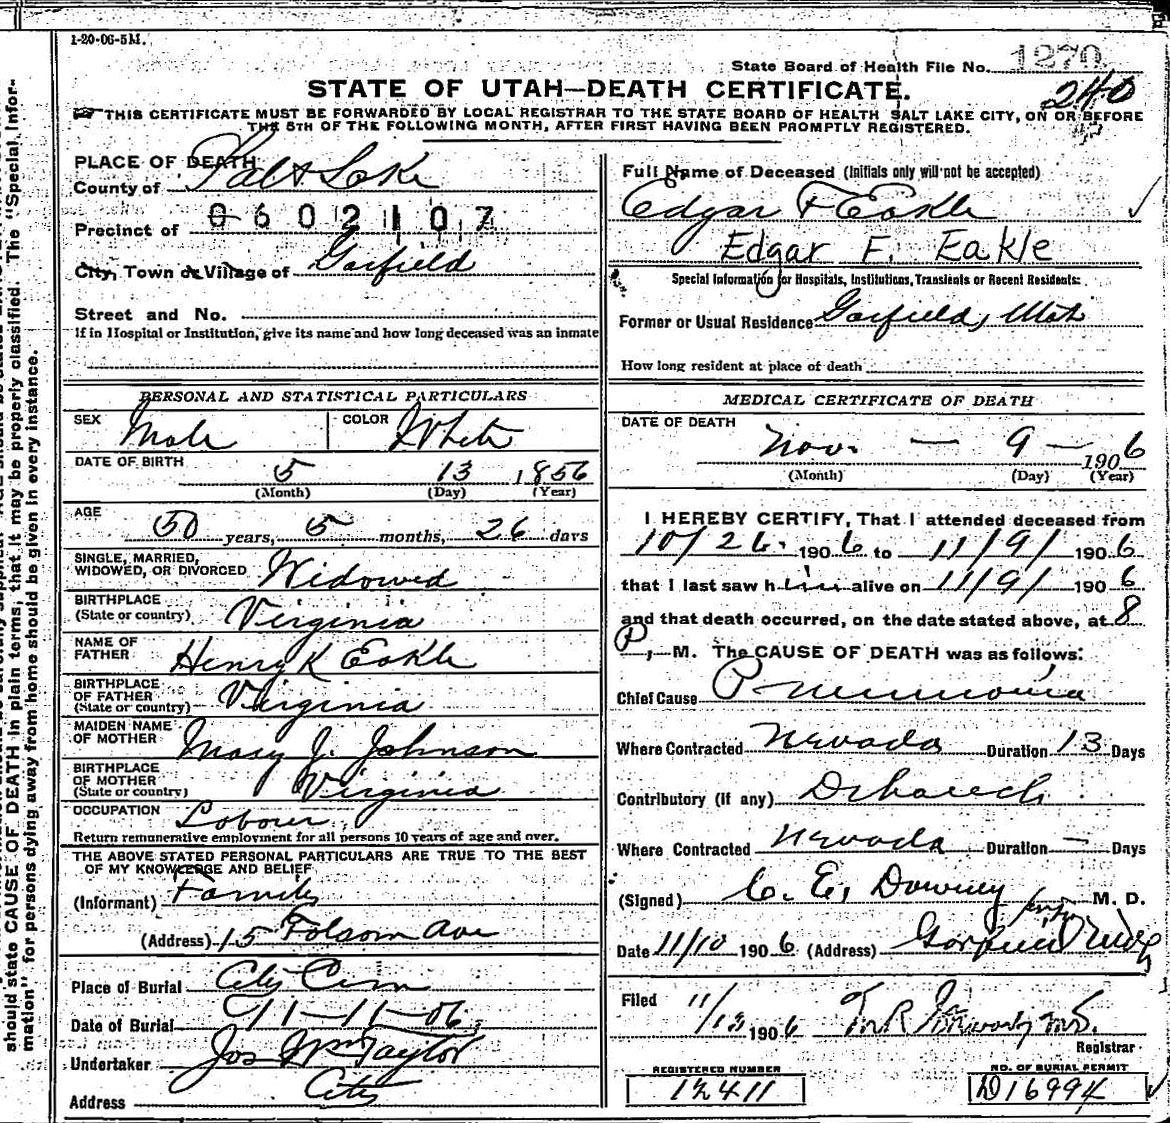 1-20-06-5M.
State Board of Health File No. 1270
240
STATE OF UTAH—DEATH CERTIFICATE.
THIS CERTIFICATE MUST BE FORWARDED BY LOCAL REGISTRAR TO THE STATE BOARD OF HEALTH SALT LAKE CITY, ON OR BEFORE
THE 5TH OF THE FOLLOWING MONTH, AFTER FIRST HAVING BEEN PROMPTLY REGISTERED.
should state CAUSE OF DEATH in plain terms, that it may be properly classified. The "Special Infor-
mation" for persons dying away from home should be given in every instance.
PLACE OF DEATH
County of Salt Lake
Precinct of 0602107
City, Town or Village of Garfield
Street and No.
If in Hospital or Institution, give its name and how long deceased was an inmate
PERSONAL AND STATISTICAL PARTICULARS
SEX Male COLOR White
DATE OF BIRTH 5 13 1856
(Month) (Day) (Year)
AGE 50 years, 5 months, 26 days
SINGLE, MARRIED,
WIDOWED, OR DIVORCED Widowed
BIRTHPLACE
(State or country) Virginia
NAME OF
FATHER Henry K Eakle
BIRTHPLACE
OF FATHER
(State or country) Virginia
MAIDEN NAME
OF MOTHER Mary J. Johnson
BIRTHPLACE
OF MOTHER
(State or country) Virginia
OCCUPATION Labourer
Return remunerative employment for all persons 10 years of age and over.
THE ABOVE STATED PERSONAL PARTICULARS ARE TRUE TO THE BEST
OF MY KNOWLEDGE AND BELIEF
(Informant) Family
(Address) 15 Folsom Ave
Place of Burial City Cem
Date of Burial 11-11-06
Undertaker Jos Wm Taylor
Address City
Full Name of Deceased (Initials only will not be accepted)
Edgar F Eakle
Edgar F. Eakle
Special Information for Hospitals, Institutions, Transients or Recent Residents:
Former or Usual Residence Garfield, Utah
How long resident at place of death
MEDICAL CERTIFICATE OF DEATH
DATE OF DEATH
Nov. — 9 — 1906
(Month) (Day) (Year)
I HEREBY CERTIFY, That I attended deceased from
10/26. 1906 to 11/9/ 1906
that I last saw him alive on 11/9/ 1906
and that death occurred, on the date stated above, at 8
P, M. The CAUSE OF DEATH was as follows:
Chief Cause Pneumonia
Where Contracted Nevada Duration 13 Days
Contributory (if any)
Where Contracted Nevada Duration — Days
(Signed) C. E. Downey M. D.
Date 11/10 1906 (Address) Garfield
Filed 11/13 1906
Registrar
REGISTERED NUMBER
12411
NO. OF BURIAL PERMIT
D16994